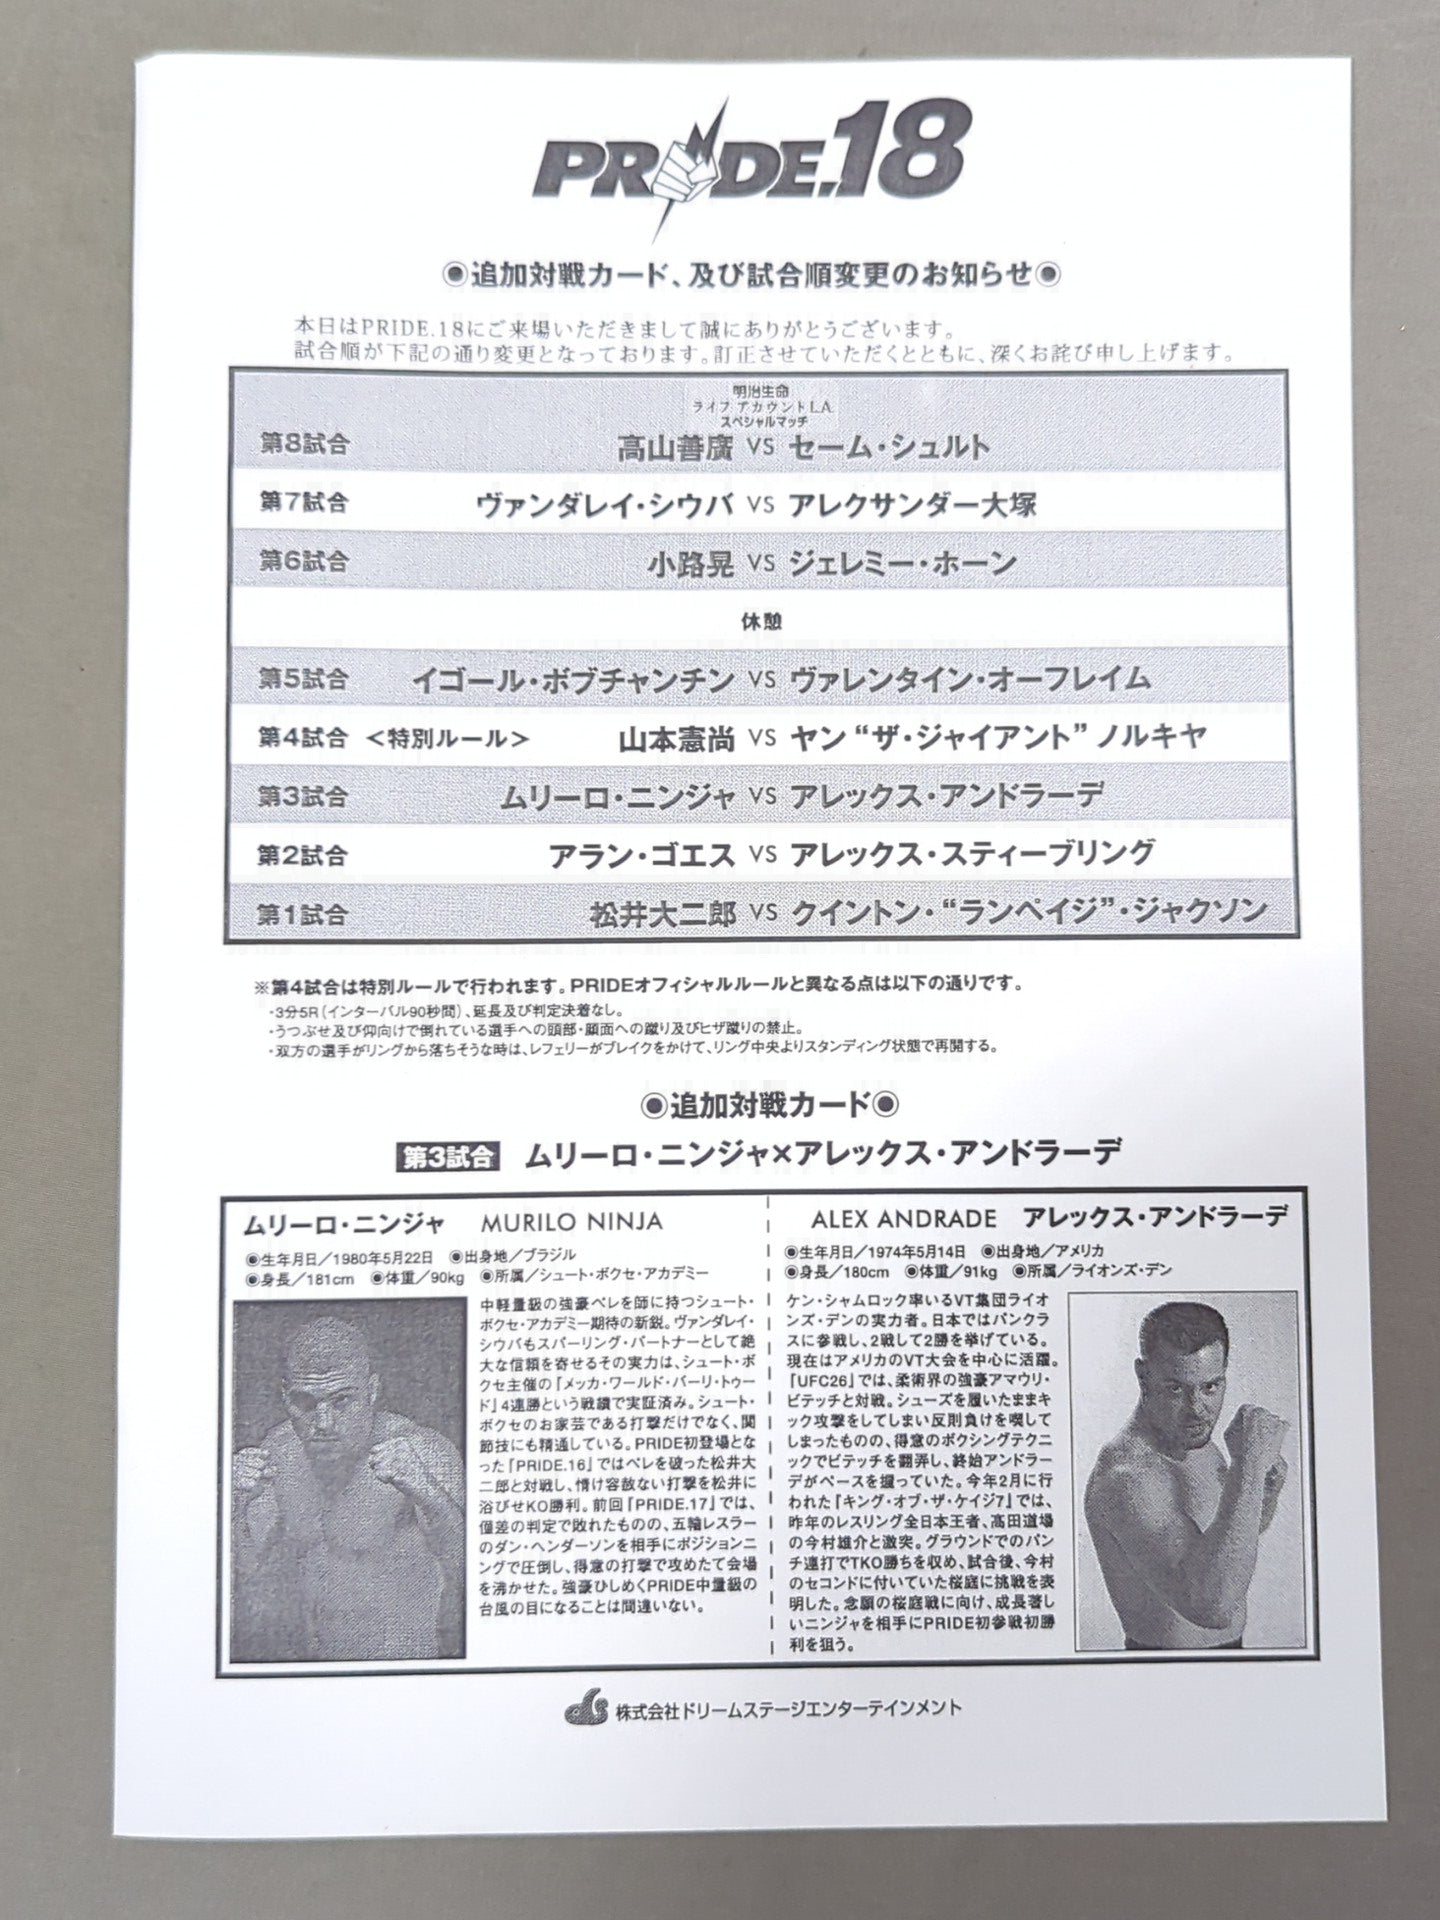 PRIDE.18
◉追加対戦カード、及び試合順変更のお知らせ◉
本日はPRIDE.18にご来場いただきまして誠にありがとうございます。
試合順が下記の通り変更となっております。訂正させていただくとともに、深くお詫び申し上げます。
明治生命
ライフ アカウントL.A.
スペシャルマッチ
第8試合 高山善廣 VS セーム・シュルト
第7試合 ヴァンダレイ・シウバ VS アレクサンダー大塚
第6試合 小路晃 VS ジェレミー・ホーン
休憩
第5試合 イゴール・ボブチャンチン VS ヴァレンタイン・オーフレイム
第4試合 <特別ルール> 山本憲尚 VS ヤン“ザ・ジャイアント”ノルキヤ
第3試合 ムリーロ・ニンジャ VS アレックス・アンドラーデ
第2試合 アラン・ゴエス VS アレックス・スティーブリング
第1試合 松井大二郎 VS クイントン・“ランペイジ”・ジャクソン
※第4試合は特別ルールで行われます。PRIDEオフィシャルルールと異なる点は以下の通りです。
・3分5R(インターバル90秒間)、延長及び判定決着なし。
・うつぶせ及び仰向けで倒れている選手への頭部・顔面への蹴り及びヒザ蹴りの禁止。
・双方の選手がリングから落ちそうな時は、レフェリーがブレイクをかけて、リング中央よりスタンディング状態で再開する。
◉追加対戦カード◉
第3試合 ムリーロ・ニンジャ×アレックス・アンドラーデ
ムリーロ・ニンジャ MURILO NINJA
◉生年月日/1980年5月22日 ◉出身地/ブラジル
◉身長/181cm ◉体重/90kg ◉所属/シュート・ボクセ・アカデミー
中軽量級の強豪ペレを師に持つシュート・
ボクセ・アカデミー期待の新鋭。ヴァンダレイ・
シウバもスパーリング・パートナーとして絶
大な信頼を寄せるその実力は、シュート・ボ
クセ主催の「メッカ・ワールド・バーリ・トゥー
ド」4連勝という戦績で実証済み。シュート・
ボクセのお家芸である打撃だけでなく、関
節技にも精通している。PRIDE初登場とな
った「PRIDE.16」ではペレを破った松井大
二郎と対戦し、情け容赦ない打撃を松井に
浴びせKO勝利。前回「PRIDE.17」では、
僅差の判定で敗れたものの、五輪レスラー
のダン・ヘンダーソンを相手にポジションニ
ングで圧倒し、得意の打撃で攻めたて会場
を沸かせた。強豪ひしめくPRIDE中量級の
台風の目になることは間違いない。
ALEX ANDRADE アレックス・アンドラーデ
◉生年月日/1974年5月14日 ◉出身地/アメリカ
◉身長/180cm ◉体重/91kg ◉所属/ライオンズ・デン
ケン・シャムロック率いるVT集団ライオ
ンズ・デンの実力者。日本ではパンクラ
スに参戦し、2戦して2勝を挙げている。
現在はアメリカのVT大会を中心に活躍。
「UFC26」では、柔術界の強豪アマウリ・
ビテッチと対戦。シューズを履いたままキ
ック攻撃をしてしまい反則負けを喫して
しまったものの、得意のボクシングテクニ
ックでビテッチを翻弄し、終始アンドラー
デがペースを握っていた。今年2月に行
われた「キング・オブ・ザ・ケイジ7」では、
昨年のレスリング全日本王者、高田道場
の今村雄介と激突。グラウンドでのパン
チ連打でTKO勝ちを収め、試合後、今村
のセコンドに付いていた桜庭に挑戦を表
明した。念願の桜庭戦に向け、成長著し
いニンジャを相手にPRIDE初参戦初勝
利を狙う。
株式会社ドリームステージエンターテインメント